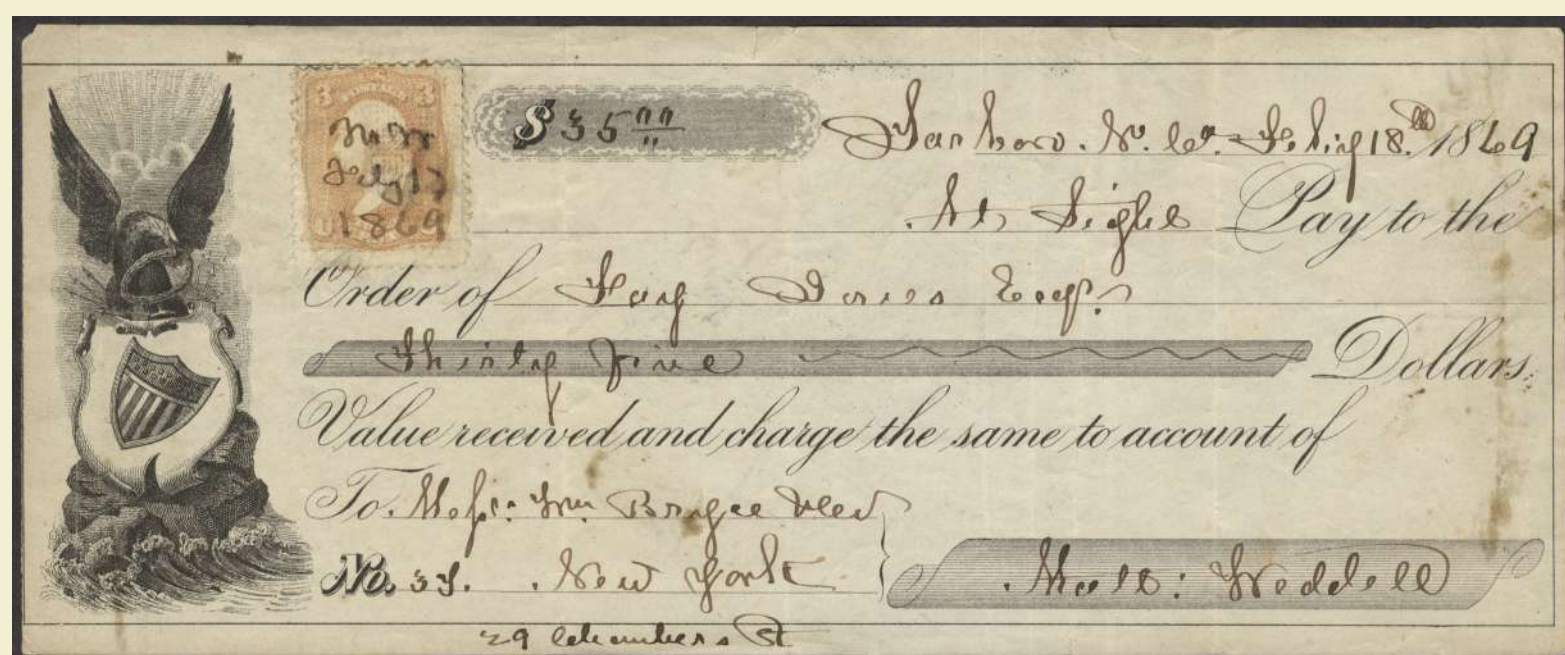 3 POSTAGE 3
M W
Feby 17
1869
$35 00
Tarboro. N. C. Feby 18th 1869
At Sight Pay to the
Order of Davies Esqr.
Thirty five Dollars.
Value received and charge the same to account of
To. Messrs: Wm. Bryce &Co
No. 37. New York
Matt: Weddell
29 Chambers St